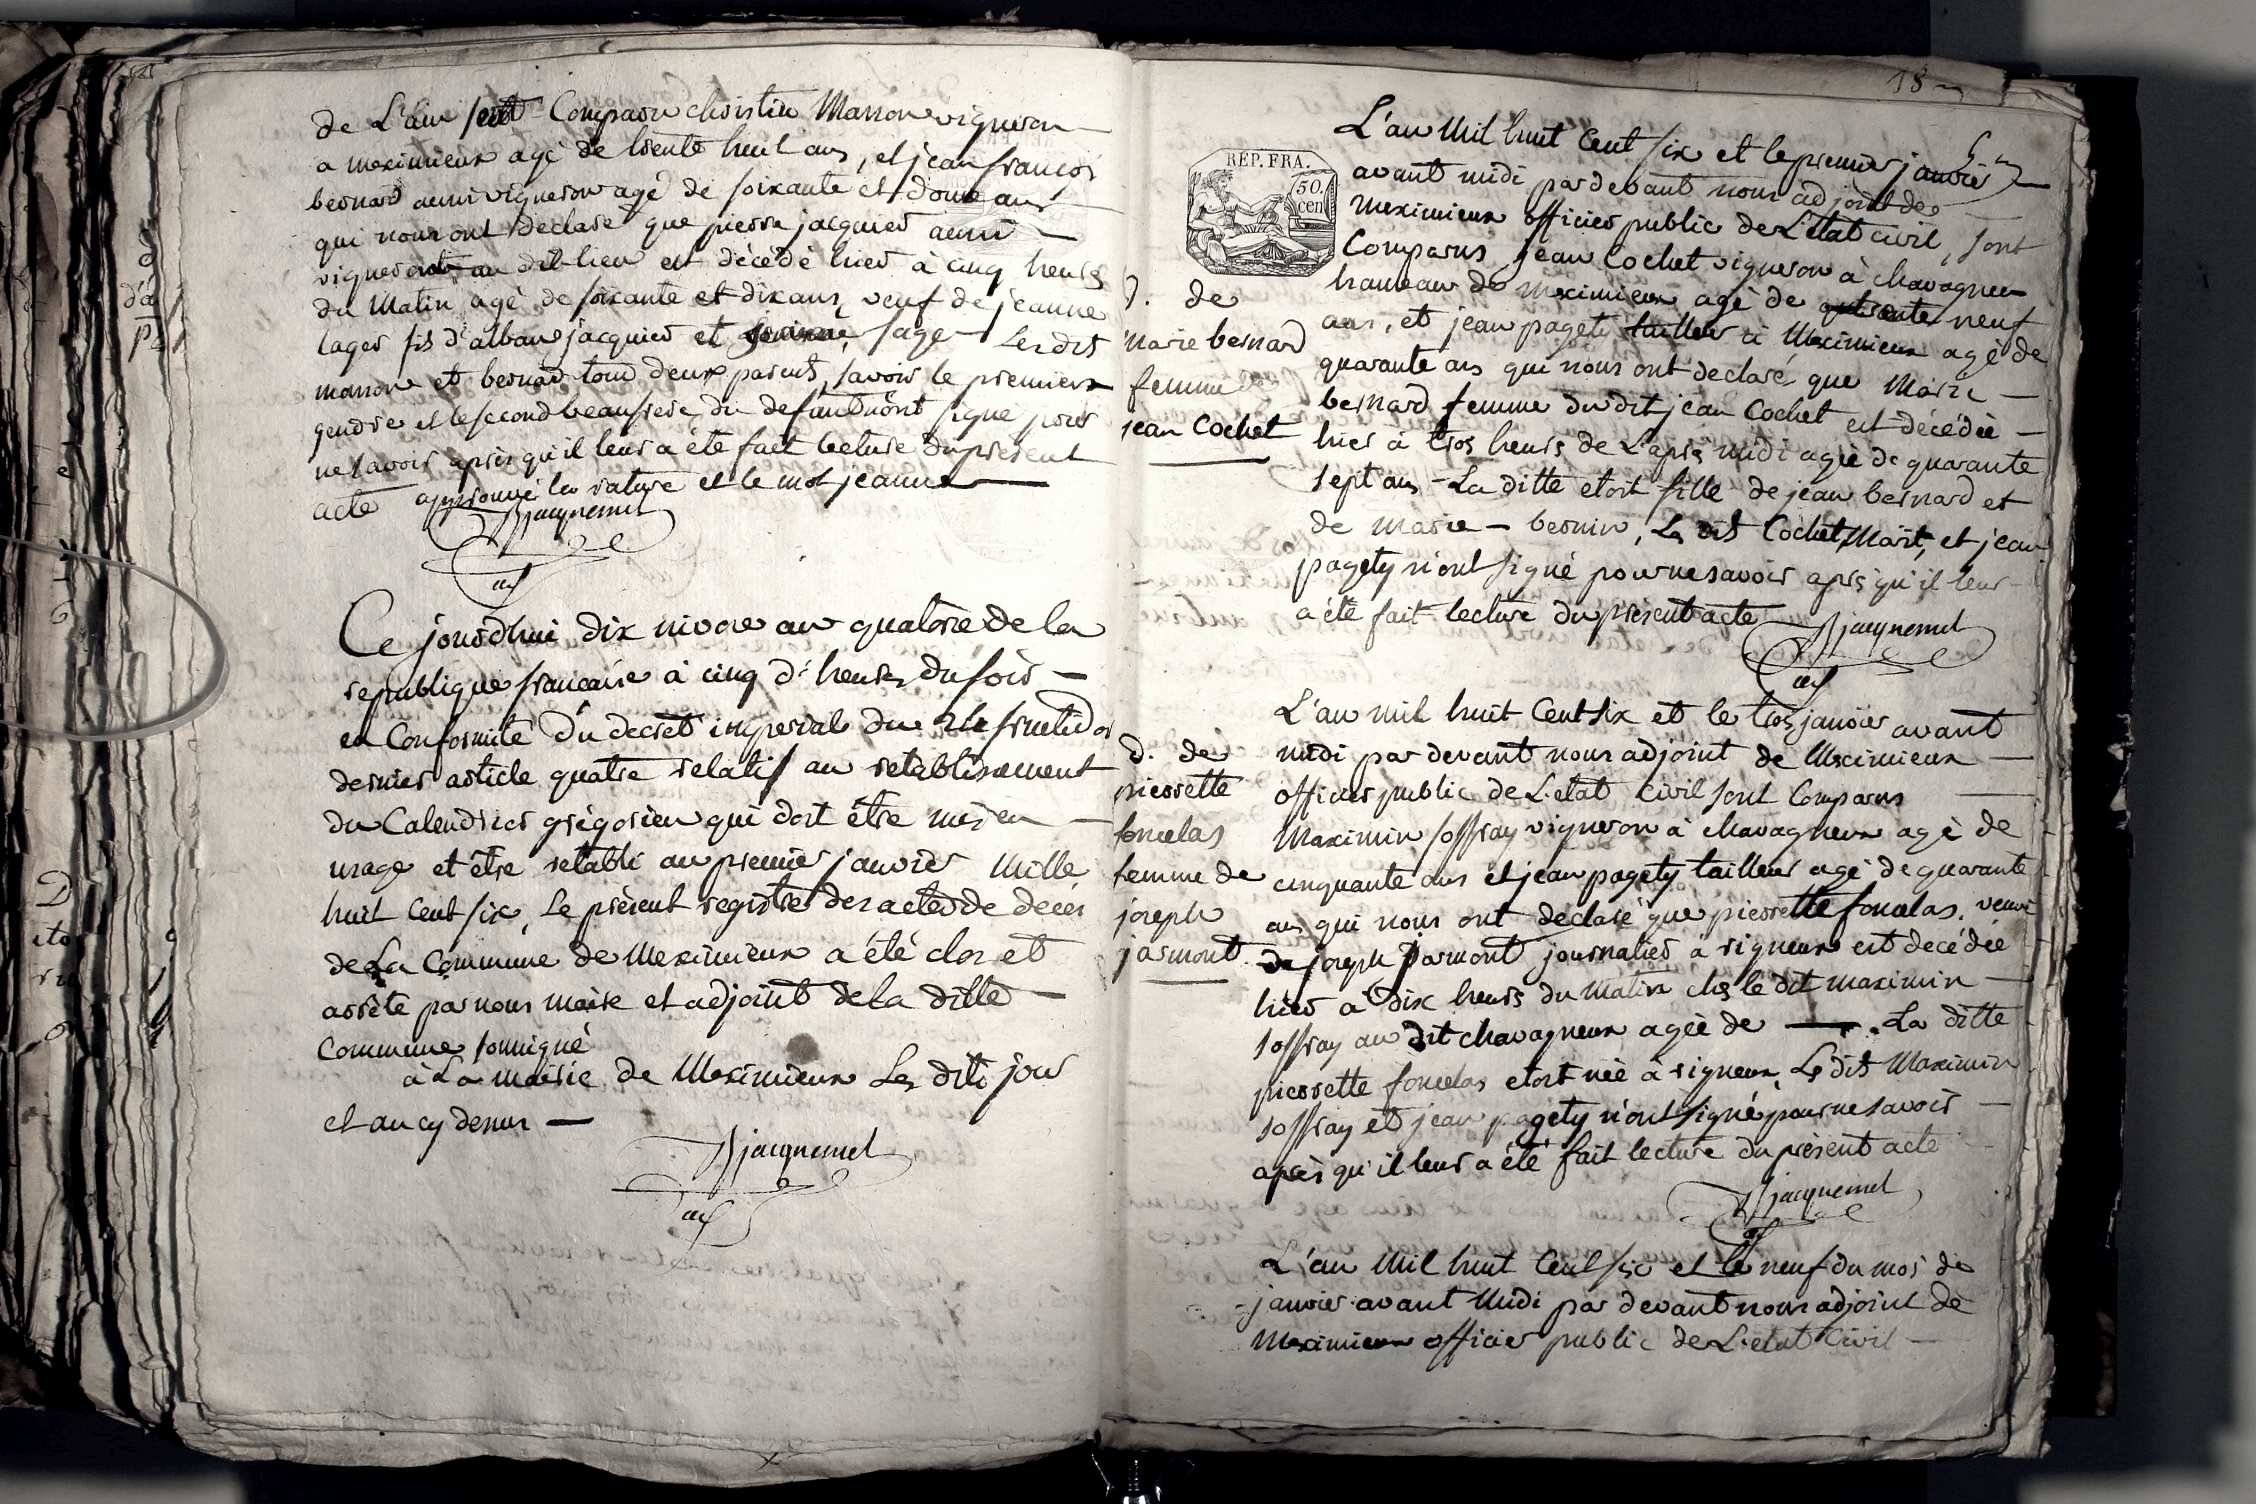 de L'ain sont Comparu christin Marron vigneron
a meximieux agé de trente huit ans, et jean françois
bernard aussi vigneron agé de soixante et douze ans
qui nous ont declaré que pierre jacquier aussi
vigneron au dit lieu est décédé hier à cinq heures
du Matin agé de soixante et dix ans, veuf de jeanne
lager fils d'alban jacquier et sage Les dits
marron et bernard tous deux parents, savoir le premier
gendre et le second beaufrere du defunt n'ont signé pour
ne savoir après qu'il leur a été fait lecture du present
acte approuvé la rature et le mot jeanne
jacquemet
adj
Ce jourdhui dix nivose an quatorze de la
republique francaise à cinq d' heures du soir
en Conformité du decret imperial du 22 fructidor
dernier article quatre relatif au retablissement
du Calendrier grégorien qui doit être mis en
usage et être retabli au premier janvier mille
huit cent six, Le présent registre des actes de décès
de La Commune de Meximieux a été clos et
arrêté par nous maire et adjoint de la ditte
Commune soussigné
à La mairie de Meximieux Les dits jour
et an cy dessus
jacquemet
adj
18
REP. FRA.
50.
cen
L'an Mil huit Cent six et le premier janvier
avant midi par devant nous adjoint de
Meximieux officier public de L'état civil, sont
Comparus jean Cochet vigneron à chavagneux
hameau de Meximieux agé de neuf
ans, et jean pagety tailleur à Meximieux agé de
quarante ans qui nous ont declaré que Marie
bernard femme du dit jean Cochet est décédée
hier à trois heures de L'après midi agée de quarante
sept ans - La ditte etoit fille de jean bernard et
de Marie - bernin, Le dit Cochet, Marit, et jean
pagety n'ont signé pour ne savoir après qu'il leur
a été fait lecture du présent acte
jacquemet
adj
d. de
marie bernard
femme
jean Cochet
L'an mil huit Cent six et le trois janvier avant
midi par devant nous adjoint de Meximieux
officier public de L'etat civil sont Comparus
Maximin soffray vigneron à chavagneux agé de
cinquante ans et jean pagety tailleur agé de quarante
ans qui nous ont declaré que pierrette foncelas veuve
de joseph jarmont journalier à rigneux est decédée
hier à dix heures du matin chez le dit maximin
soffray au dit chavagneux agée de La ditte
pierrette foncelas etoit née à rigneux, Le dit Maximin
soffray et jean pagety n'ont signé pour ne savoir
après qu'il leur a été fait lecture du présent acte
jacquemet
d. de
pierrette
foncelas
femme de
joseph
jarmont
L'an Mil huit Cent six et le neuf du mois de
janvier avant Midi par devant nous adjoint de
Meximieux officier public de L'etat Civil